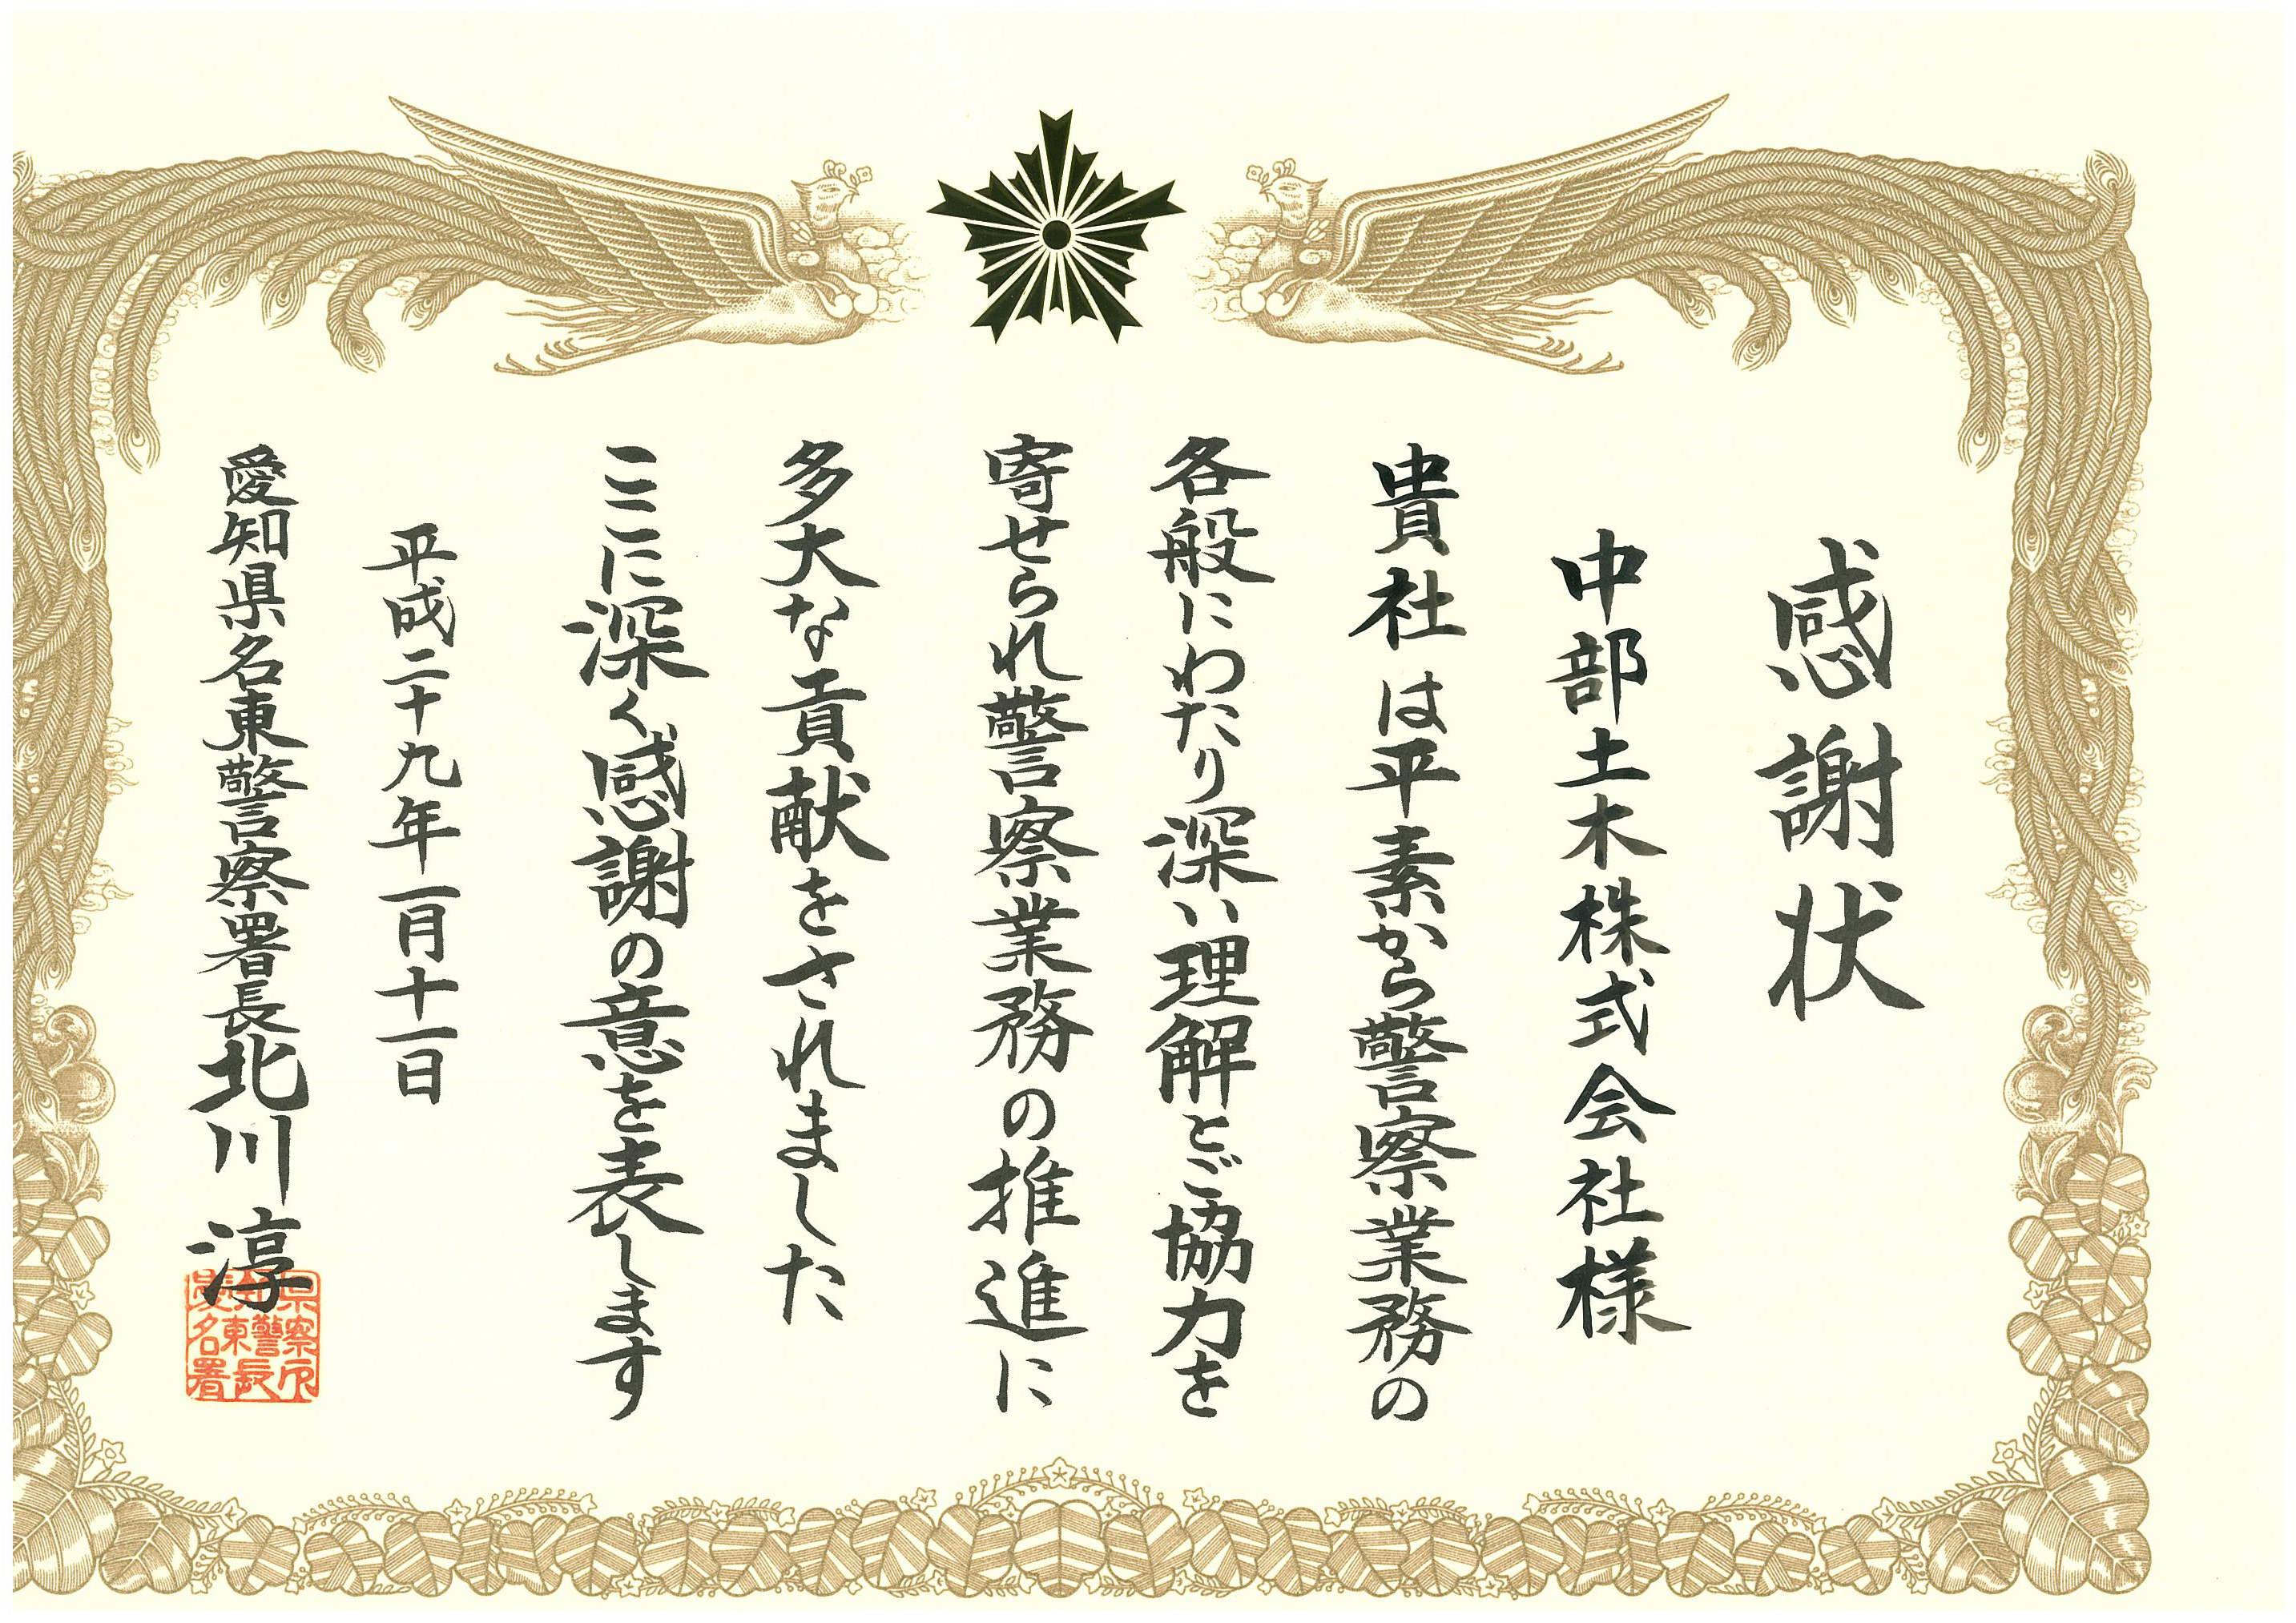 感謝状
中部土木株式会社様
貴社は平素から警察業務の
各般にわたり深い理解とご協力を
寄せられ警察業務の推進に
多大な貢献をされました
ここに深く感謝の意を表します
平成二十九年一月十一日
愛知県名東警察署長北川淳